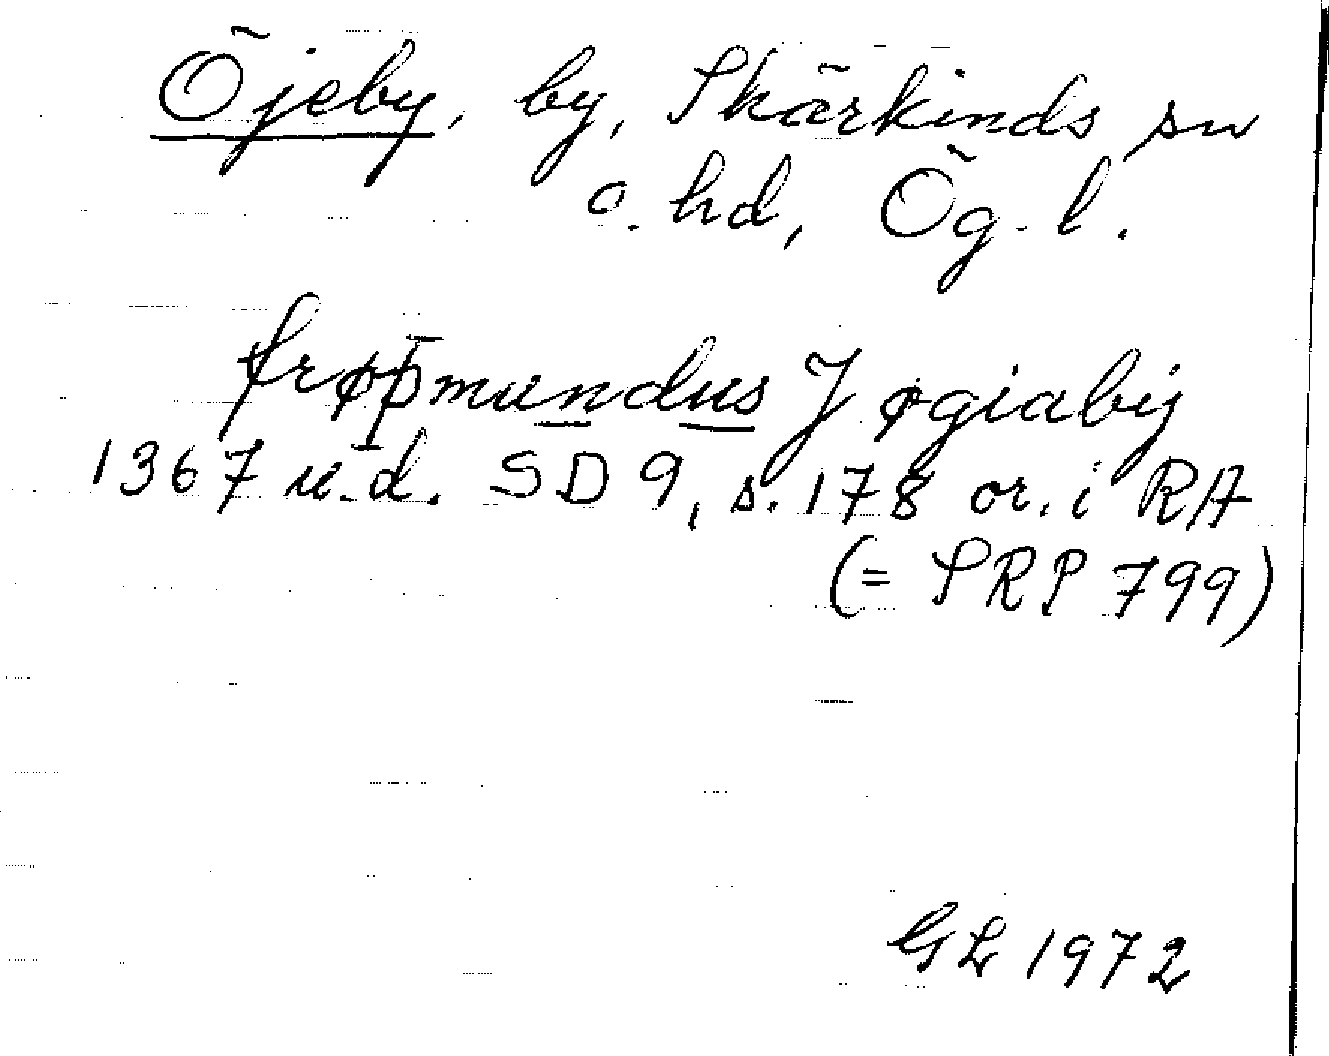 Öjeby, by, Skärkinds sn
o. hd, Ög. l.
frøþmundus J øgiaby
1367 u.d. SD 9, s. 178 or. i RA
(= SRP 799)
GL 1972